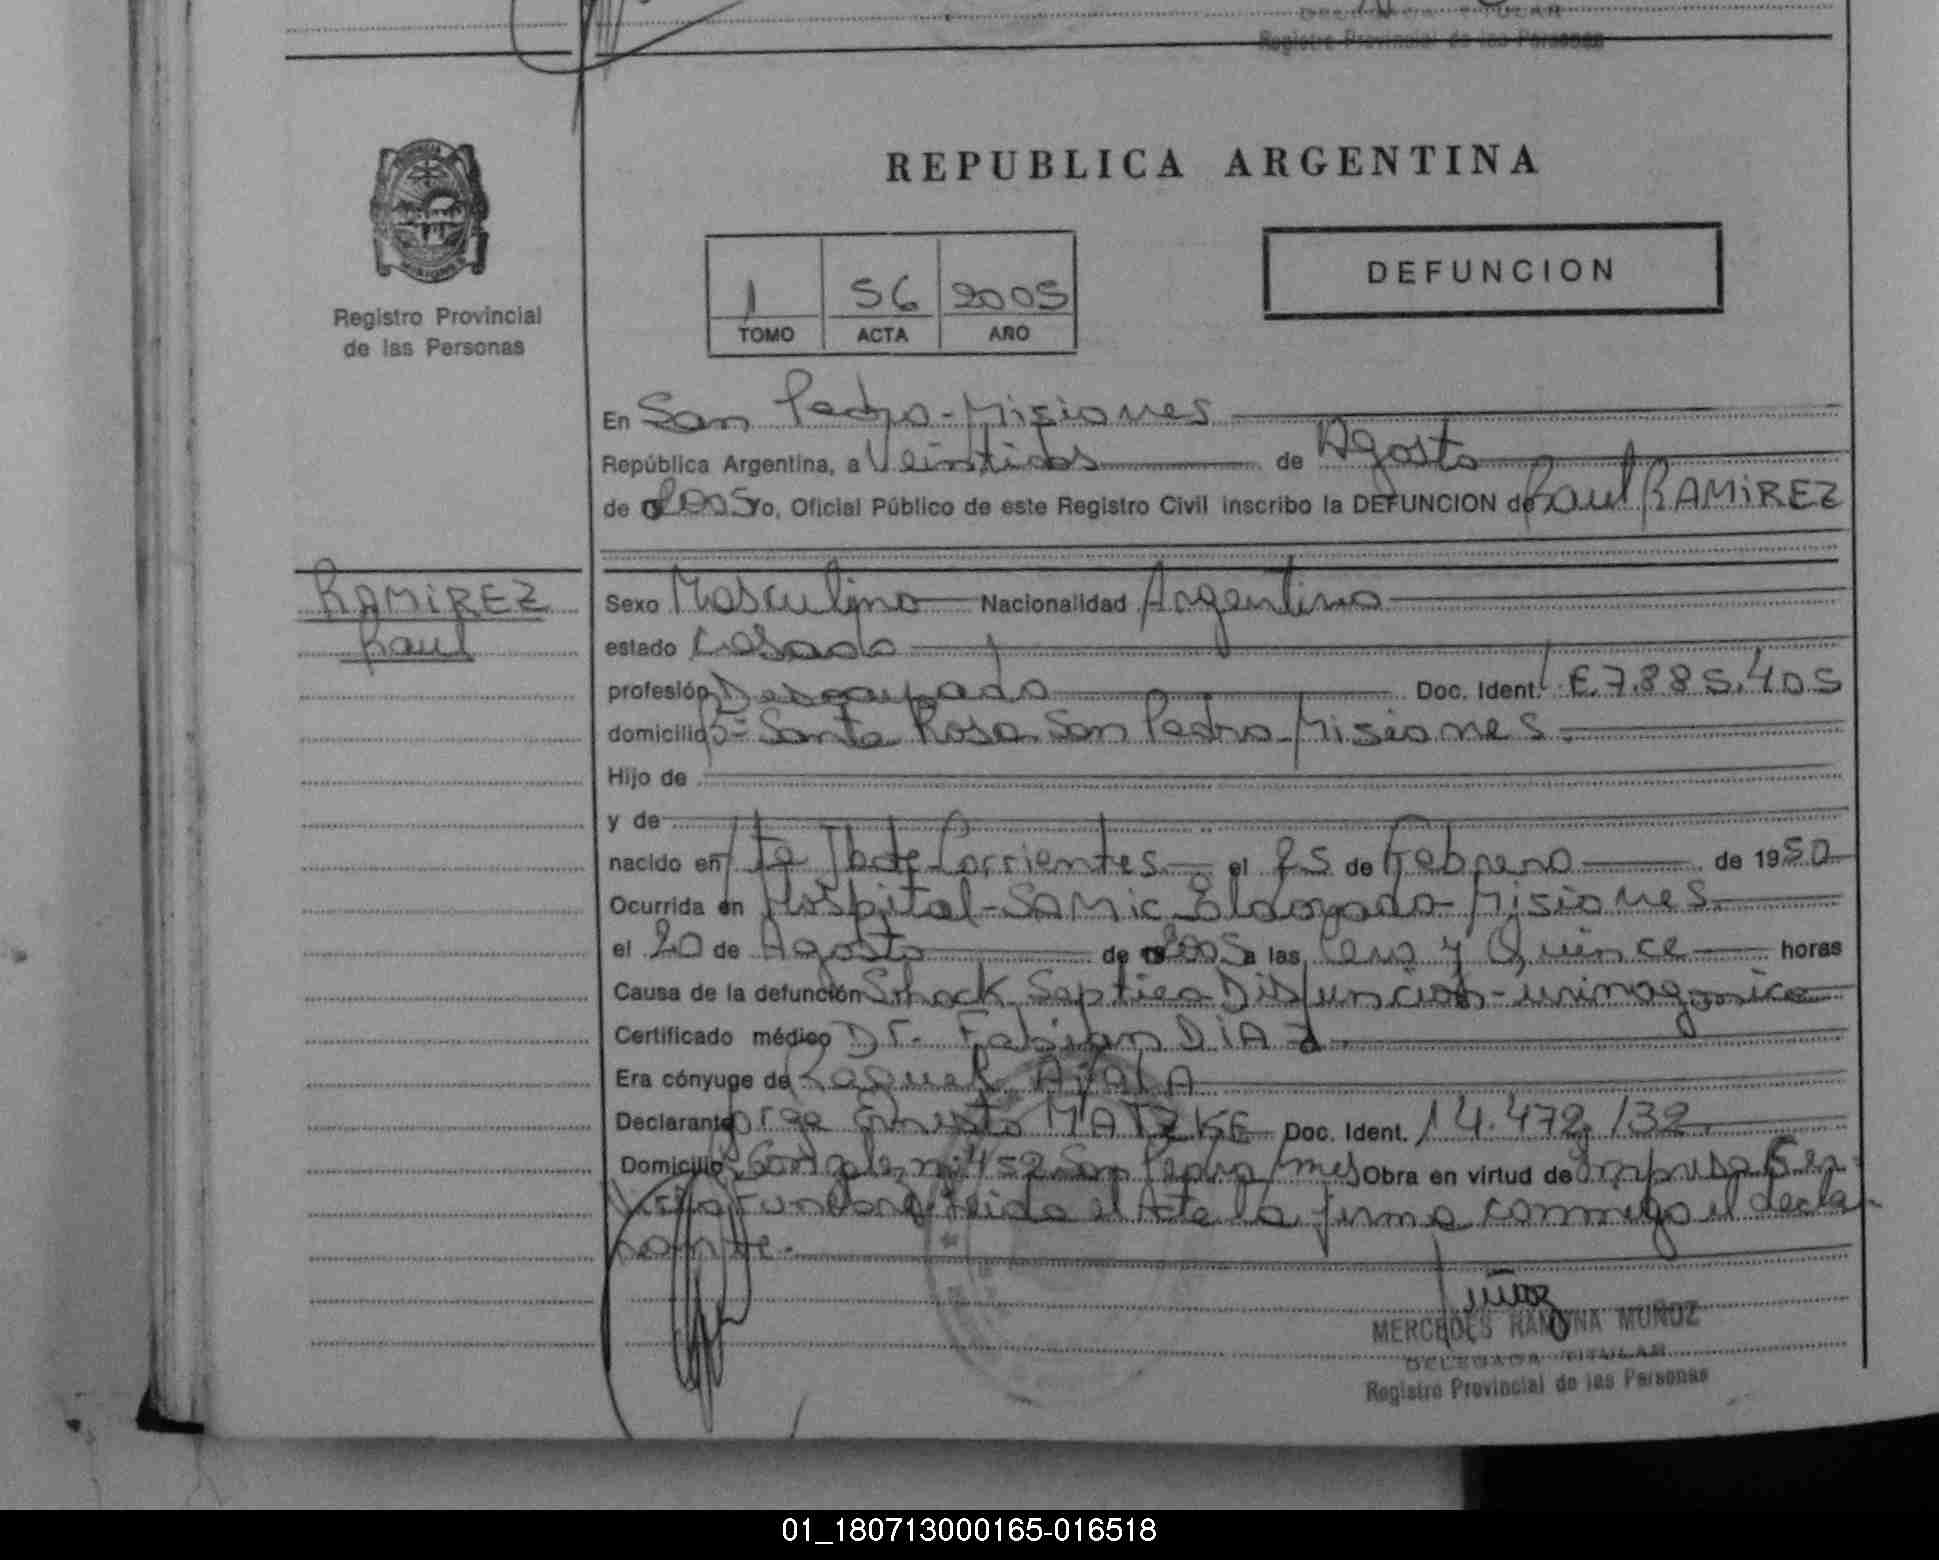 DELEGADA TITULAR
Registro Provincial de las Personas
REPUBLICA ARGENTINA
DEFUNCION
1 56 2005
TOMO ACTA AÑO
Registro Provincial
de las Personas
En San Pedro-Misiones
República Argentina, a Veintidos de Agosto
de 2005 Yo, Oficial Público de este Registro Civil inscribo la DEFUNCION de Raul RAMIREZ
RAMIREZ
Raul
Sexo Masculino Nacionalidad Argentino
estado Casado
profesión Desocupado Doc. Ident. L.E.7.885.405
domicilio Bº Santa Rosa San Pedro-Misiones.
Hijo de
y de
nacido en Corrientes el 25 de Febrero de 1950
Ocurrida en Hospital-SAMic Eldorado-Misiones
el 20 de Agosto de 2005 a las Cero y Quince horas
Causa de la defunción Shock Septico Disfuncion
Certificado médico Dr. Fabian DIAZ.
Era cónyuge de Raquel AYALA
Declarante Jorge Ernesto MATZKE Doc. Ident. 14.472.132
Domicilio Gonzalez nº 452 San Pedro Mnes Obra en virtud de Empresa Ser-
vicio Leida el Acta la firma conmigo el decla-
rante.
Muñoz
MERCEDES RAMONA MUÑOZ
DELEGADA TITULAR
Registro Provincial de las Personas
01_180713000165-016518